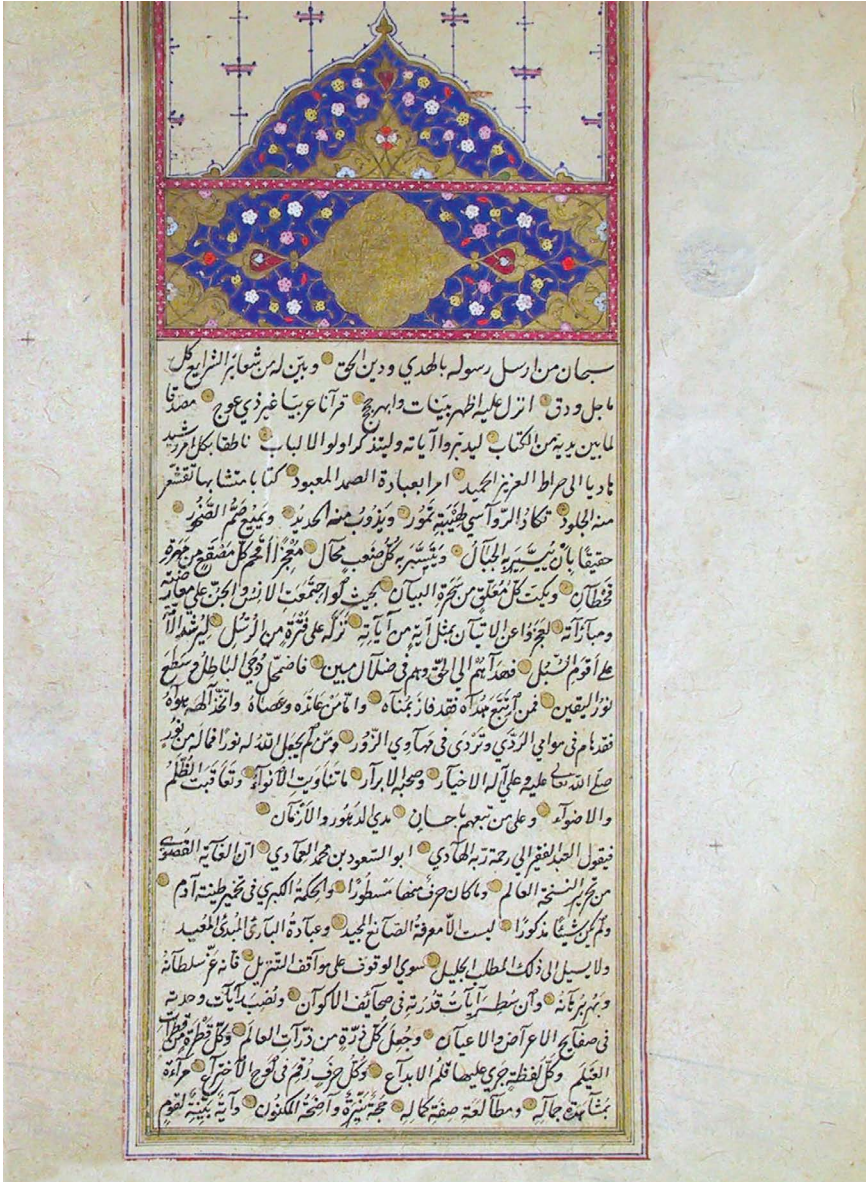 سبحان من ارسل رسوله بالهدي ودين الحق وبين له من شعائر الشرايع كل
ما جل ودق انزل عليه اظهر بينات وابهر حجج قرآنا عربيا غير ذي عوج مصدقا
لما بين يديه من الكتاب ليدبروا آياته وليتذكر اولوا الالباب ناطقا بكل امر رشيد
هاديا الى صراط العزيز الحميد امرا بعبادة الصمد المعبود كتابا متشابها تقشعر
منه الجلود تكاد الرواسي لهيبته تمور ويذوب منه الحديد ويميع صم الصخور
حقيقا بان يسير به الجبال ويتيسر به كل صعب محال معجزا افحم كل مصقع من مهرة
قحطان وبكت كل مفلق من سحرة البيان بحيث لو اجتمعت الانس والجن علي معارضته
ومباراته لعجزوا عن الاتيان بمثل آية من آياته نزله علي فترة من الرسل ليرشد الامة
علي اقوم السبل فهداهم الي الحق وهم في ضلال مبين فاضمحل دجي الباطل وسطع
نور اليقين فمن اتبع هداه فقد فاز بمناه واما من عانده وعصاه واتخذ الهه هواه
فقد هام في موامي الردي وتردى في مهاوي الزور ومن لم يجعل الله له نورا فما له من نور
صلي الله تعالي عليه وعلي آله الاخيار وصحبه الابرار ما تناوبت الانواء وتعاقبت الظلم
والاضواء وعلى من تبعهم باحسان مدي الدهور والازمان
فيقول العبد الفقير الي رحمة ربه الهادي ابو السعود بن محمد العمادي ان الغاية القصوي
من تحرير النسخة العالم وما كان حرف منها مسطورا والحكمة الكبري في تخمير طينة آدم
ولم يكن شيئا مذكورا ليست الا معرفة الصانع المجيد وعبادة البارئ المبدئ المعيد
ولا سبيل الى ذلك المطلب الجليل سوي الوقوف علي مواقف التنزيل فانه عز سلطانه
وبهر برهانه وان سطر آيات قدرته في صحائف الاكوان ونصب رايات وحدته
في صفايح الاعراض والاعيان وجعل كل ذرة من ذرات العالم وكل قطرة من قطرات
العيلم وكل لفظة جري عليها قلم الابداع وكل حرف رقم في لوح الاختراع مرآة
بمشاهدة جماله ومطالعة صفة كماله حجة نيرة واضحة المكنون وآية بينة لقوم